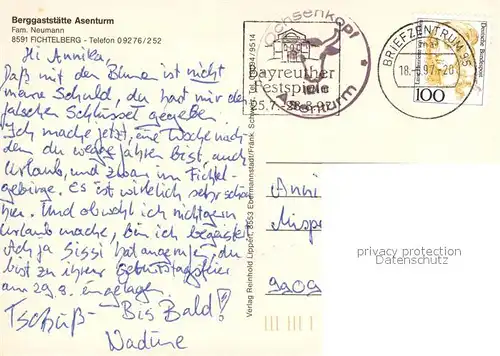 Berggaststätte Asenturm
Fam. Neumann
8591 FICHTELBERG - Telefon 09276/252
Hi Annika,
Daß mit den Blume ist nicht
meine Schuld, du hast mir den
falschen Schlüssel gegeben.
Ich mache jetzt, eine Woche nach-
dem du weggefahren bist, auch
Urlaub, und zwar im Fichtel-
gebirge. Es ist wirklich sehr schön
hier. Und obwohl ich nicht gern
Urlaub mache, bin ich begeistert.
Ach ja Sissi hat angerufen, du
bist zu ihrer Geburtstagsfeier
am 29.8. eingeladen.
Tschüß - Bis Bald!
Nadine
Verlag Reinhold Lippert, 8553 Ebermannstadt/Fränk.
Ochsenkopf
Asenturm
Bayreuther
Festspiele
25.7.-28.8.97
BRIEFZENTRUM 95
18.-8.97-20
Deutsche Bundespost
100
Anni
Mispe
9909
privacy protection
Datenschutz